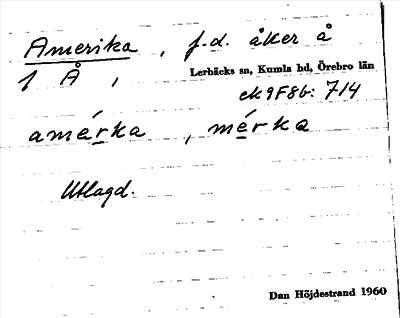 Amerika, f.d. åker å
1 Å,
Lerbäcks sn, Kumla hd, Örebro län
ek 9F8b: 714
amérka, mérka
Utlagd.
Dan Höjdestrand 1960